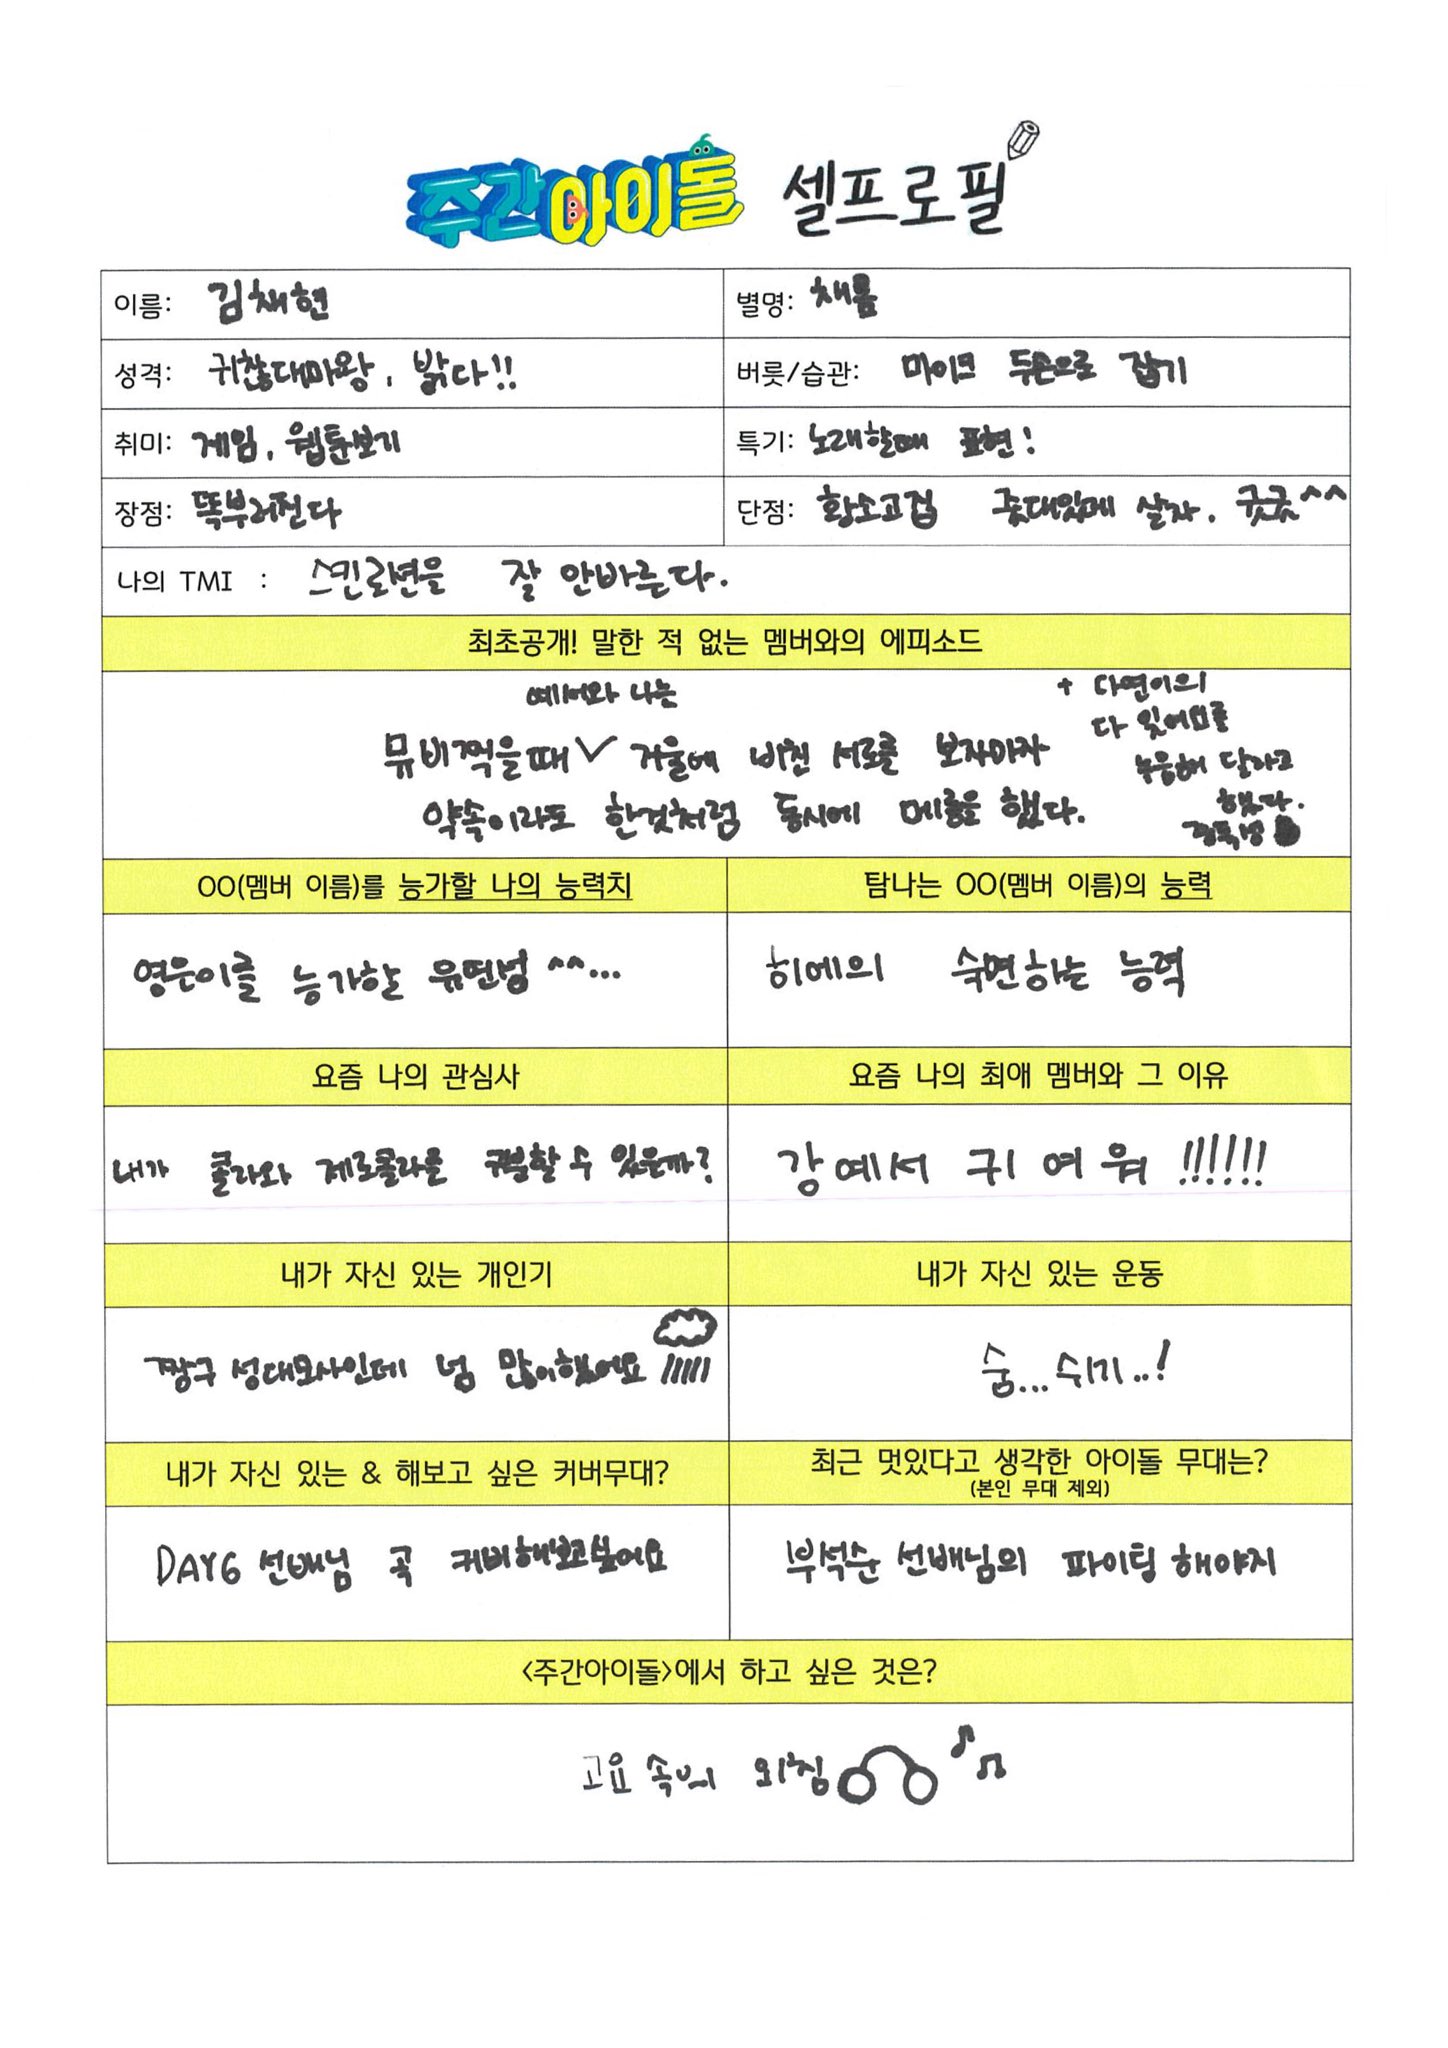 주간아이돌 셀프로필
이름: 김채현
별명: 채룸
성격: 귀찮대마왕, 밝다!!
버릇/습관: 마이크 두손으로 잡기
취미: 게임, 웹툰보기
특기: 노래할때 표현!
장점: 똑부러진다
단점: 황소고집 줏대있게 살자. 긋긋^^
나의 TMI : 스킨로션을 잘 안바른다.
최초공개! 말한 적 없는 멤버와의 에피소드
예서와 나는
뮤비찍을때 ∨ 거울에 비친 서로를 보자마자
약속이라도 한것처럼 동시에 메롱을 했다.
+ 다연이의
다 잇어므를
녹음해 달라고
했다.
OO(멤버 이름)를 능가할 나의 능력치
탐나는 OO(멤버 이름)의 능력
영은이를 능가할 유연성 ^^...
히에의 숙면하는 능력
요즘 나의 관심사
요즘 나의 최애 멤버와 그 이유
내가 콜라와 제로콜라를 구분할 수 있을까?
강예서 귀여워 !!!!!!
내가 자신 있는 개인기
내가 자신 있는 운동
짱구 성대모사인데 넘 많이했어요
숨... 쉬기..!
내가 자신 있는 & 해보고 싶은 커버무대?
최근 멋있다고 생각한 아이돌 무대는?
(본인 무대 제외)
DAY6 선배님 곡 커버해보고싶어요
부석순 선배님의 파이팅 해야지
<주간아이돌>에서 하고 싶은 것은?
고요 속의 외침